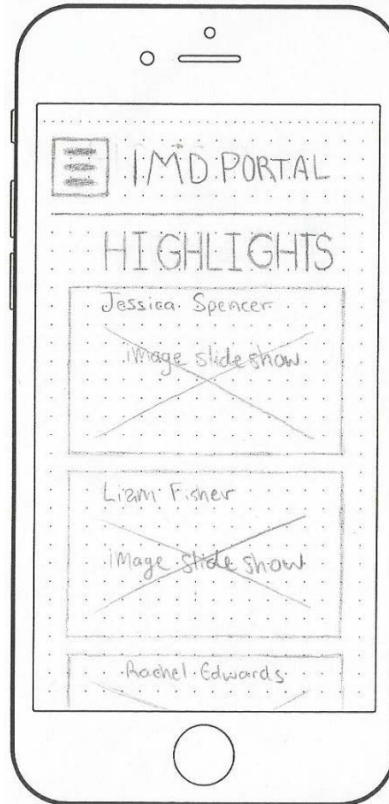 IMD PORTAL
HIGHLIGHTS
Jessica Spencer
image slide show
Liam Fisher
image slide show
Rachel Edwards